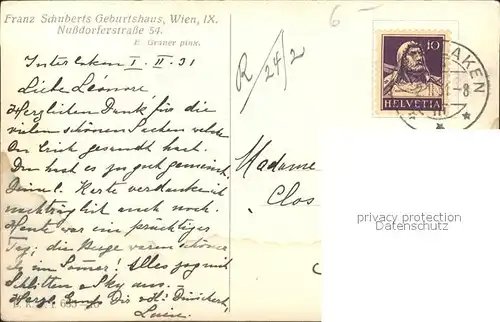 Franz Schuberts Geburtshaus, Wien, IX.
Nußdorferstraße 54.
E. Graner pinx.
6 —
R / 24/2
Interlaken I. II. 31
Liebe Léonore
Herzlichen Dank für die
vielen schönen Sachen welche
du Erich gesandt hast.
Du hast es zu gut gemeint.
Deine l. Karte verdanke ich
nachträglich auch noch.
Heute war ein prächtiges
Tag; die Berge waren schöner
als im Sommer! Alles zog mit
Schlitten & Sky aus.
Herzl.
Madame
Clos
10
HELVETIA
LAKEN
-8
III
privacy protection
Datenschutz